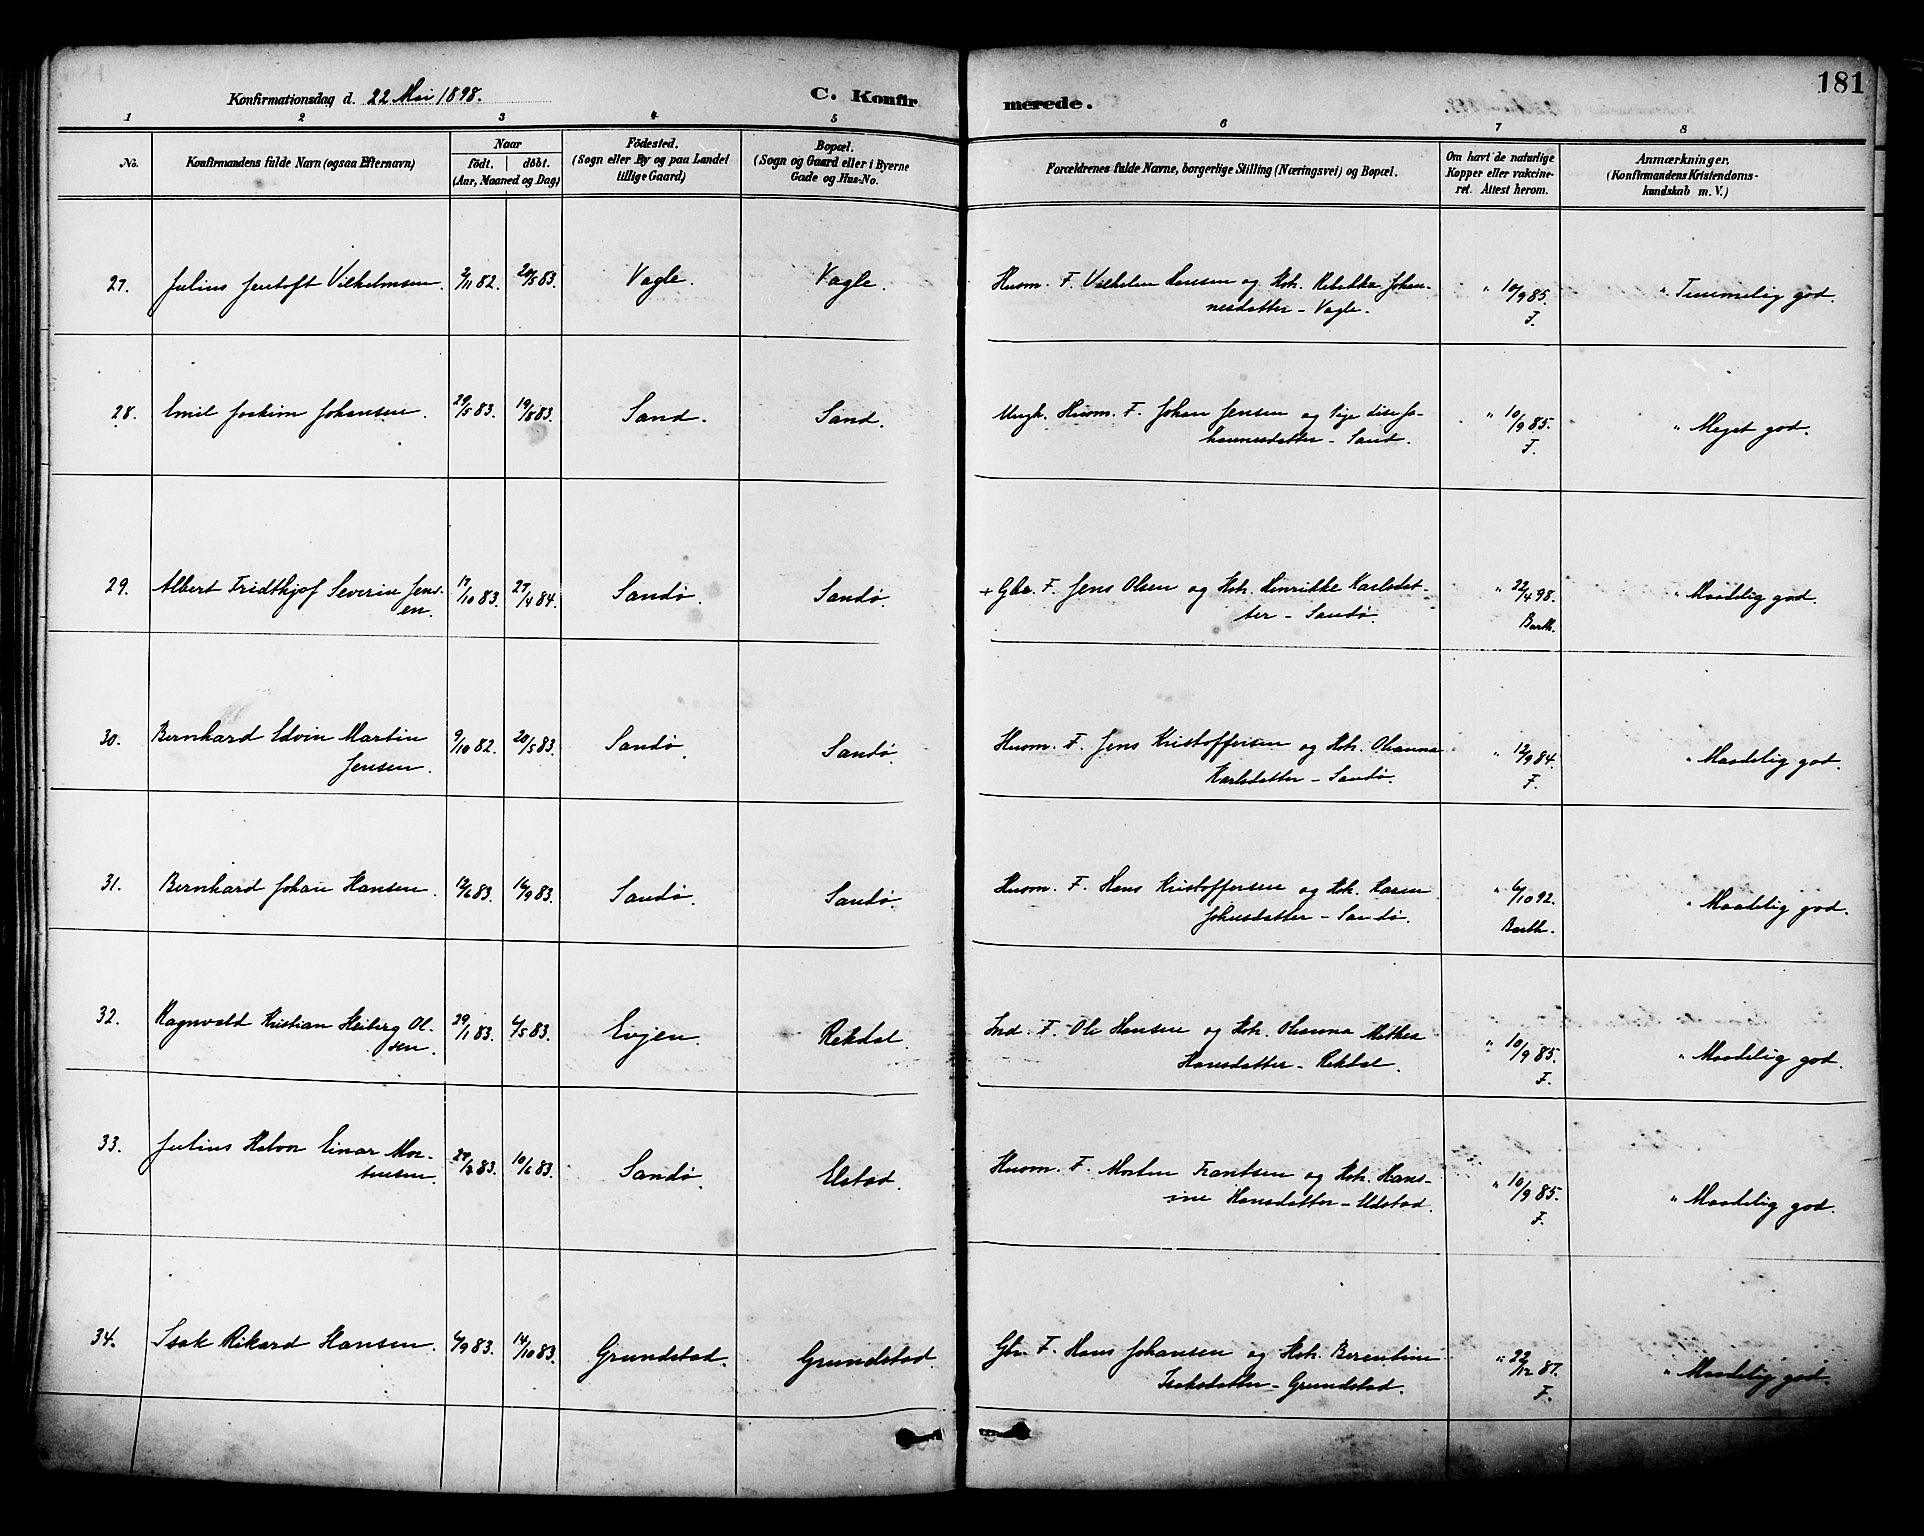 181
Konfirmationsdag d. 22 Mai 1898. C. Konfir merede.
1 2 3 4 5 6 7 8
No. Konfirmandens fulde Navn (ogsaa Efternavn) Naar født. døbt. (Aar, Maaned og Dag) Födested. (Sogn eller By og paa Landet tillige Gaard) Bopæl. (Sogn og Gaard eller i Byerne Gade og Hus-No. Forældrenes fulde Navne, borgerlige Stilling (Næringsvei) og Bopæl. Om havt de naturlige Kopper eller vakcineret. Attest herom. Anmærkninger. (Konfirmandens Kristendomskundskab m. V.)
27. Julius Jentoft Vilhelmsen. 2/11 82. 20/5 83. Vagle. Vagle. Husm. F. Vilhelm Hansen og Hst. Rebekka Johan- " 10/9 85. " Temmelig god.
nesdatter - Vagle. F.
28. Emil Joakim Johansen. 29/5 83. 19/8 83. Sand. Sand. Ungk. Husm. F. Johan Jensen og Pige Lise Jo- " 10/9 85. " Meget god.
hannesdatter - Sand. F.
29. Albert Fridthjof Severin Jens- 17/10 83. 27/4 84. Sandø. Sandø. + Gbr. F. Jens Olsen og Hst. Henrikke Karlsdat- " 22/4 98. " Maadelig god.
en. ter - Sandø. Barth.
30. Bernhard Edvin Martin 9/10 82. 20/5 83. Sandø. Sandø. Husm. F. Jens Kristoffersen og Hst. Olianna " 12/9 84. " Maadelig god.
Jensen. Karlsdatter - Sandø. F.
31. Bernhard Johan Hansen. 12/6 83. 16/9 83. Sandø. Sandø. Husm. F. Hans Kristoffersen og Hst. Karen " 6/10 92. " Maadelig god.
Johnsdatter - Sandø. Barth.
32. Ragnvald Kristian Heiberg Ol- 29/1 83. 6/5 83. Evjen. Rekdal. Ind. F. Ole Hansen og Hst. Olianna Mathea " 10/9 85. " Maadelig god.
sen. Hansdatter - Rekdal. F.
33. Julius Halvor Einar Mor- 83. 10/6 83. Sandø. Elstad. Husm. F. Morten Frantsen og Hst. Hans- " 10/9 85. " Maadelig god.
tensen. ine Hansdatter - Udstad. F.
34. Isak Rikard Hansen. 6/9 83. 14/10 83. Grundstad. Grundstad. Gbr. F. Hans Johansen og Hst. Berentine " 22/12 87. " Maadelig god.
Isaksdatter - Grundstad. F.